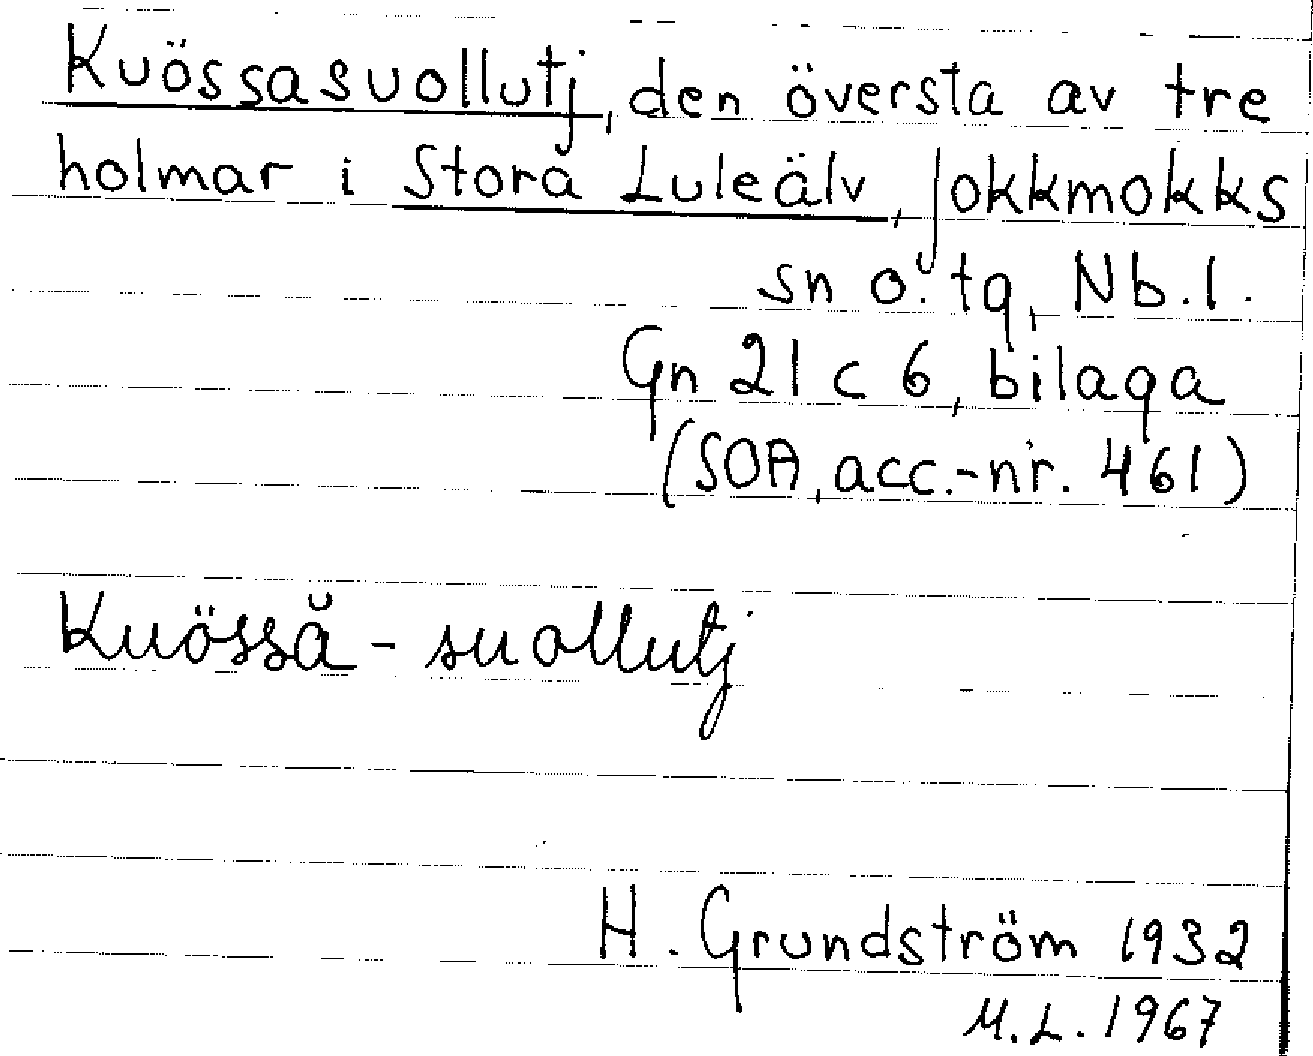 Kuössasuollutj, den översta av tre
holmar i Stora Luleälv, Jokkmokks
sn o. tg, Nb.l.
Gn 21 c 6, bilaga
(SOA, acc.-nr. 461)
Kuössă - suollutj
H. Grundström 1932
M.L. 1967